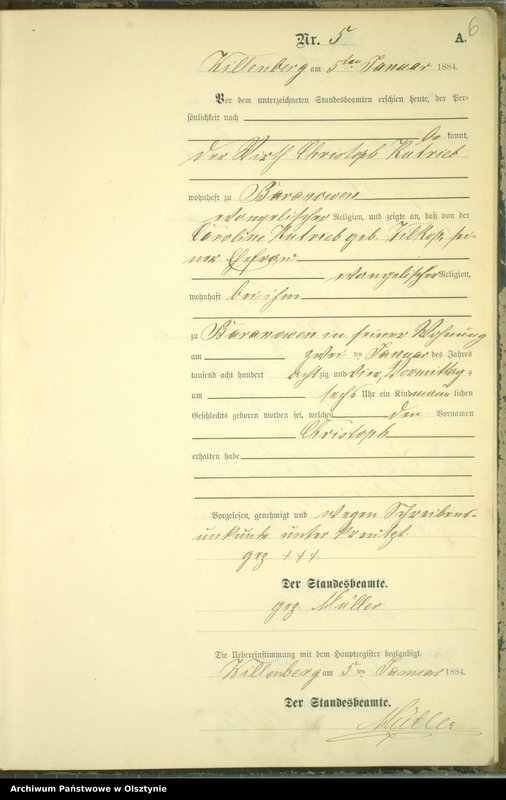 6
Nr. 5 A.
Willenberg am 5ten Januar 1884.
Vor dem unterzeichneten Standesbeamten erschien heute, der Per-
sönlichkeit nach
be kannt,
der Wirth Christoph Kutrieb
wohnhaft zu Baranowen
evangelischer Religion, und zeigte an, daß von der
Caroline Kutrieb geb. sei-
ner Ehefrau
evangelischer Religion,
wohnhaft bei ihm
zu Baranowen in seiner Wohnung
am zwei ten Januar des Jahres
tausend acht hundert acht zig und vier, Vormittag s
um sechs Uhr ein Kind männ lichen
Geschlechts geboren worden sei, welches den Vornamen
Christoph
erhalten habe
Vorgelesen, genehmigt und wegen Schreibens-
unkunde unter kreuzt.
gez +++
Der Standesbeamte.
gez. Müller
Die Uebereinstimmung mit dem Hauptregister beglaubigt
Willenberg am 5 ten Januar 1884.
Der Standesbeamte.
Müller
Archiwum Państwowe w Olsztynie